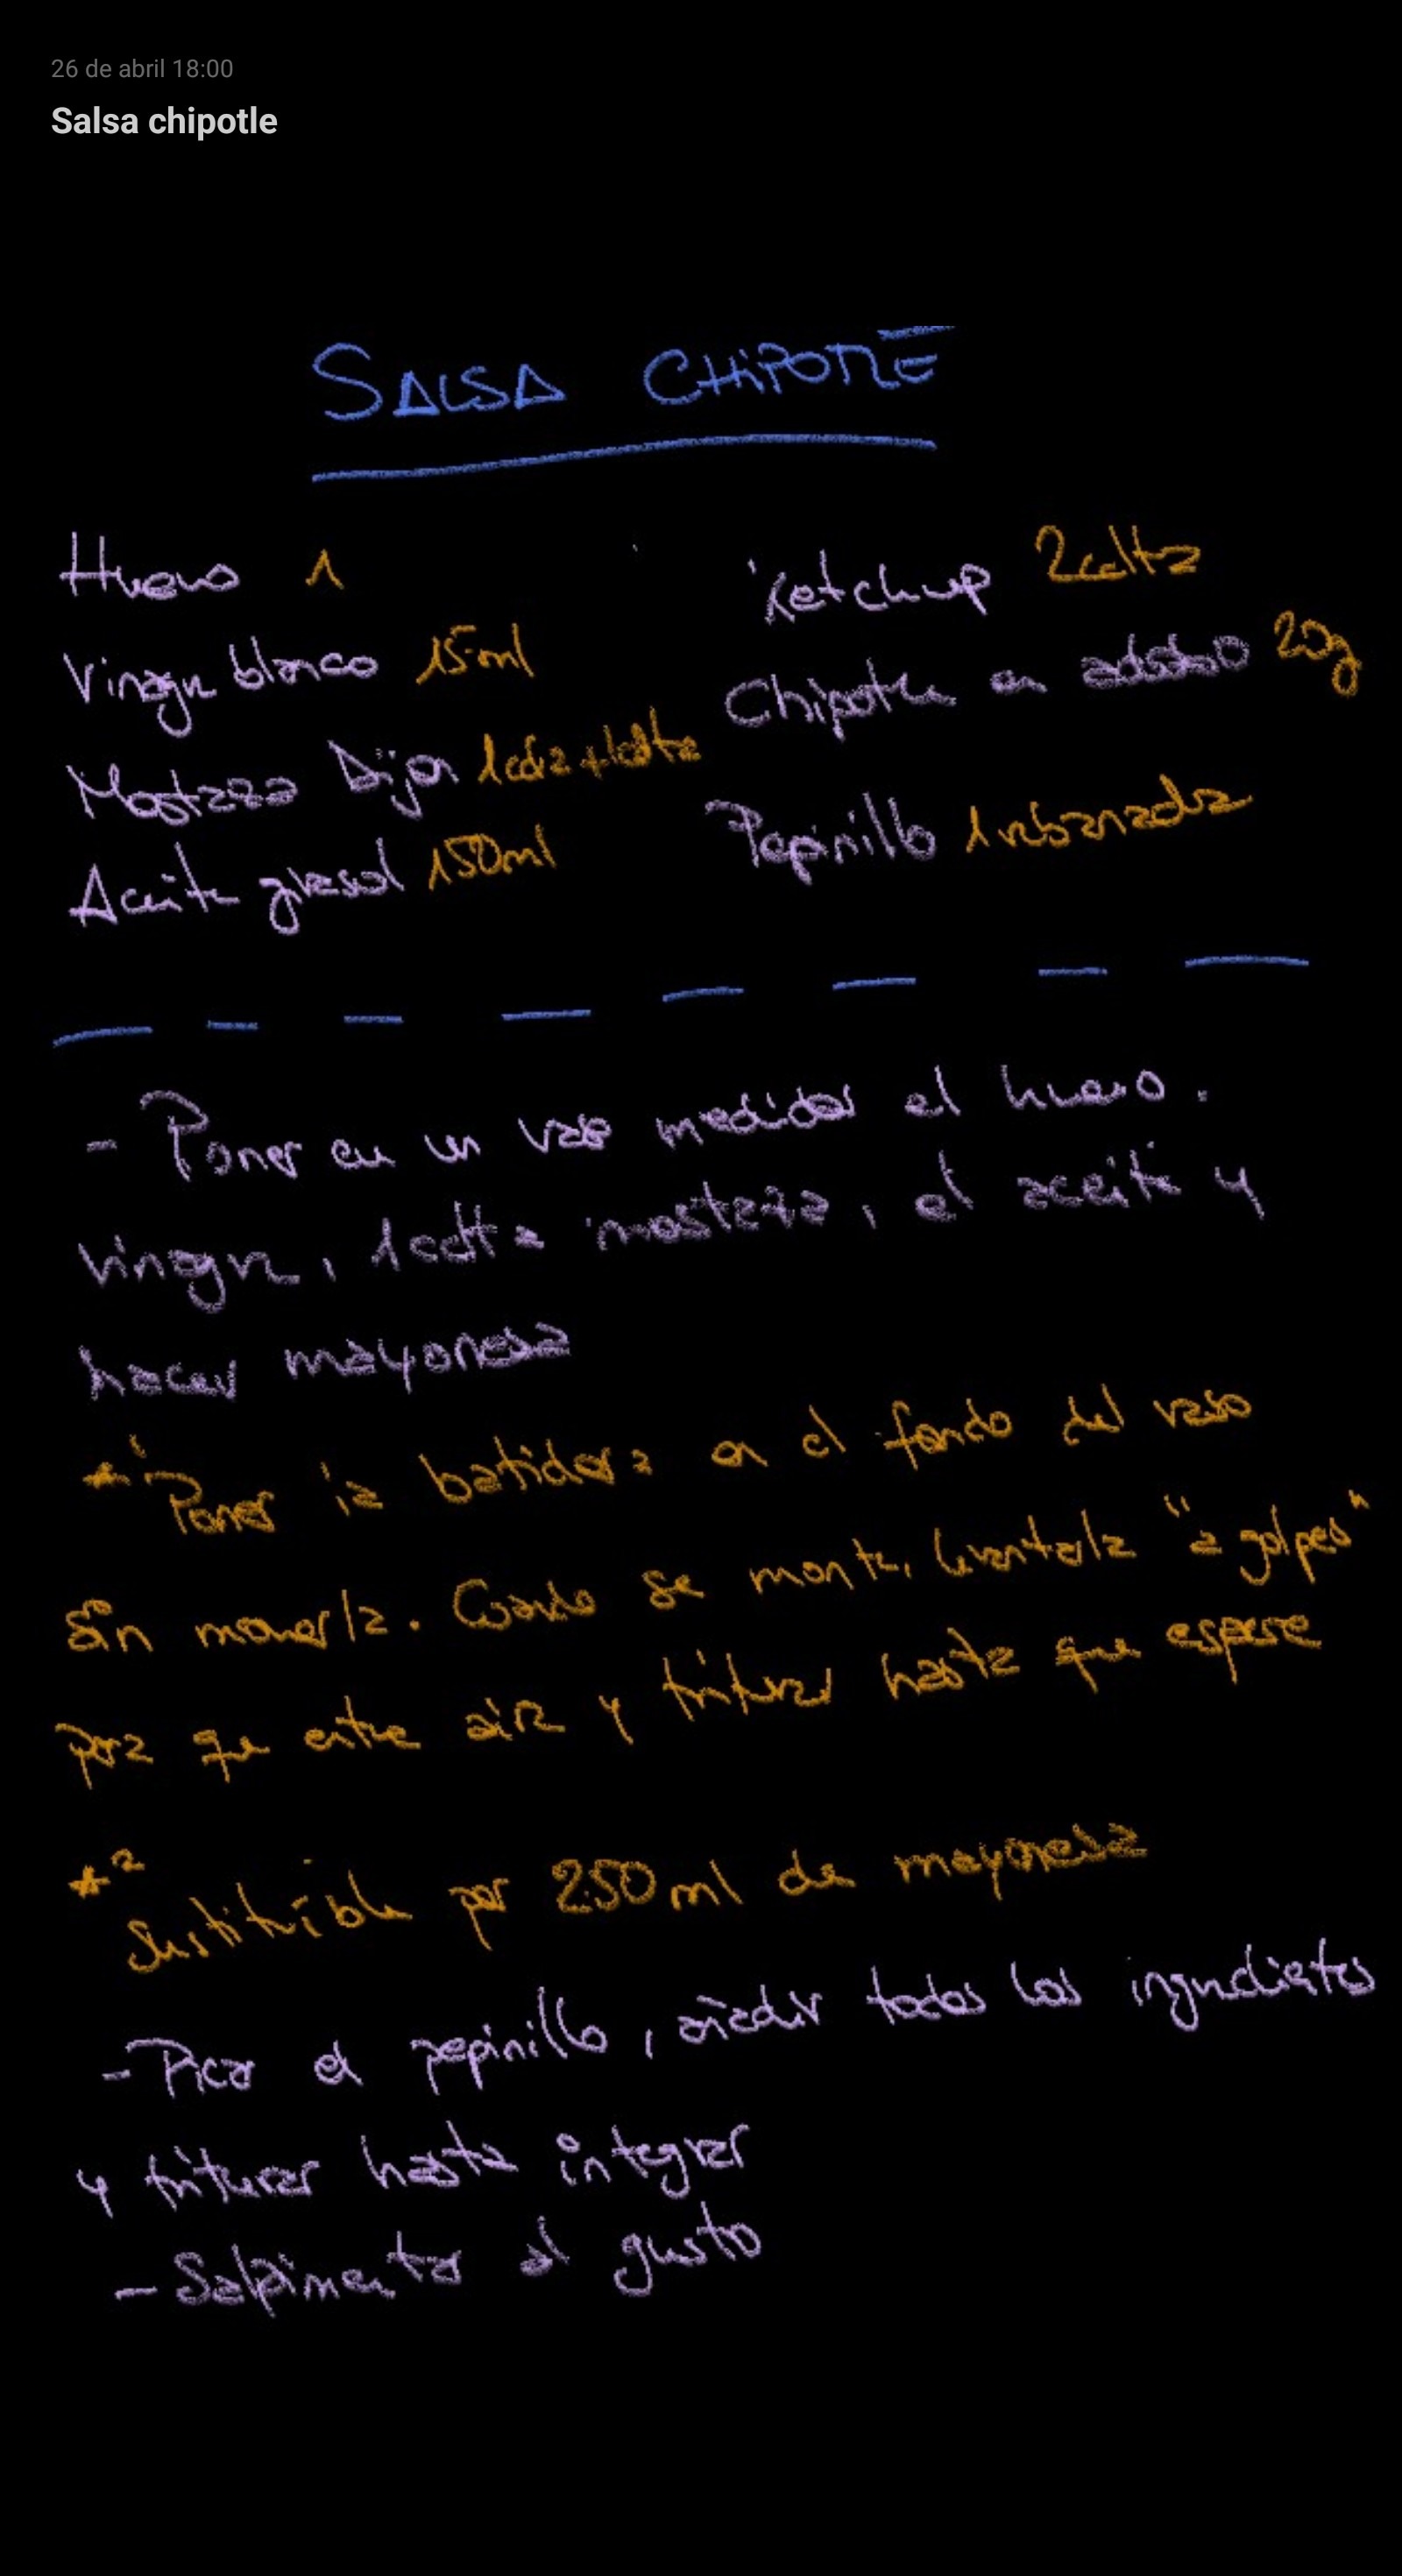 26 de abril 18:00
Salsa chipotle
SALSA CHIPOTLE
Huevo 1
Vinagre blanco 15 ml
Mostaza Dijon 1cdta + 1cdta
Aceite girasol 150ml
Ketchup 2cdta
Chipotle en adobo 20g
Pepinillo 1 rebanada
- Poner en un vaso medidor el huevo.
vinagre, 1 cdta mostaza, el aceite y
hacer mayonesa
*1 Poner la batidora en el fondo del vaso
sin moverla. Cuando se monte, levantarla "a golpes"
para que entre aire y triturar hasta que espese
*2
Sustituible por 250 ml de mayonesa
- Picar el pepinillo, añadir todos los ingredientes
y triturar hasta integrar
- Salpimentar al gusto